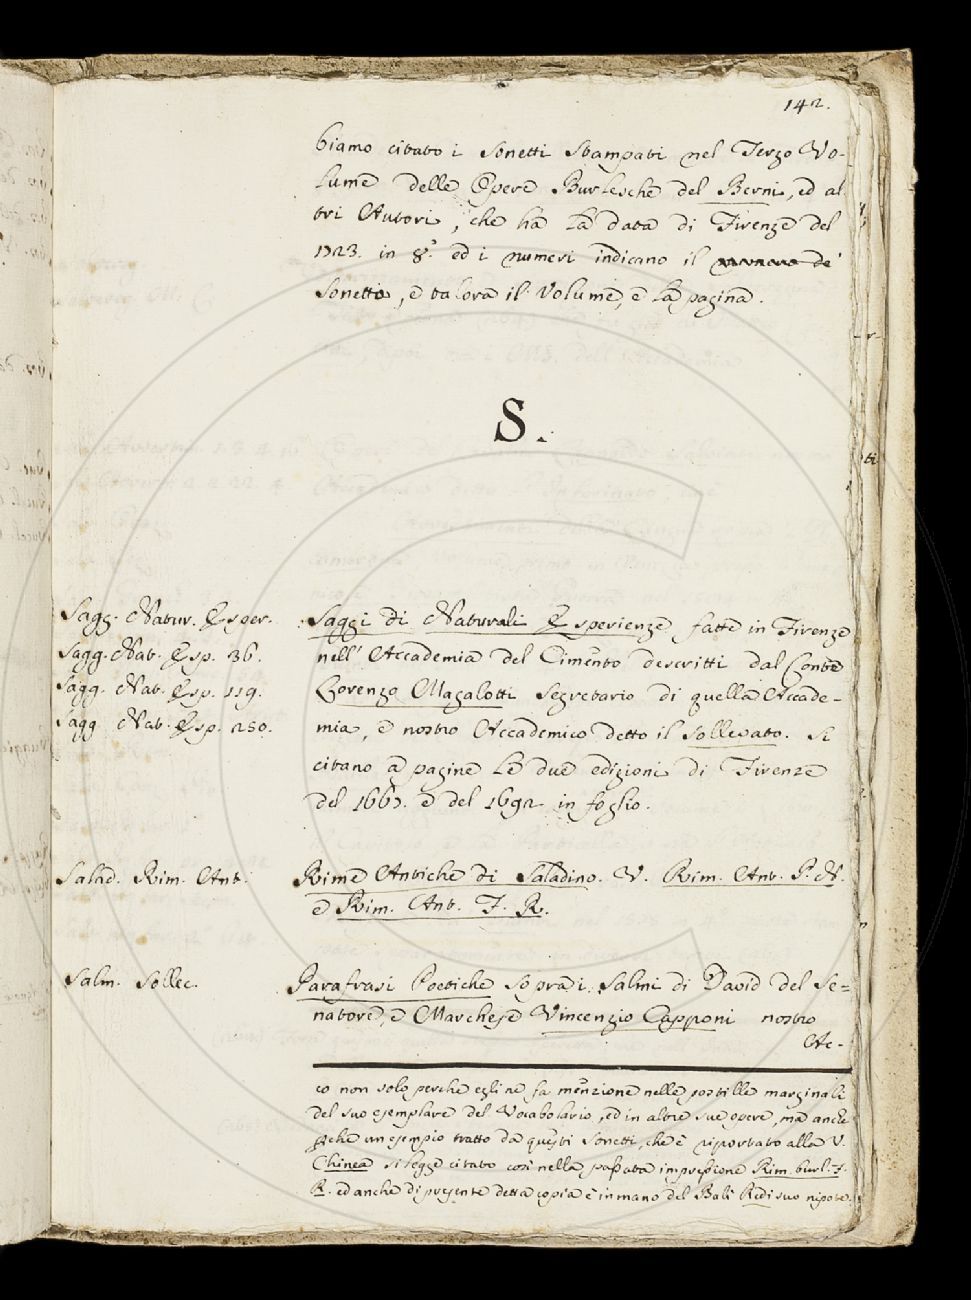 142.
biamo citato i Sonetti Stampati nel Terzo Vo-
lume delle Opere Burlesche del Berni, ed al
tri Autori, che ha la data di Firenze del
1723. in 8.° ed i numeri indicano il numero de'
Sonetto, e talora il Volume, e la pagina.
S.
Sagg. Natur. Esper.
Sagg. Nat. Esp. 36.
Sagg. Nat. Esp. 119.
Sagg. Nat. Esp. 250.
Saggi di Naturali Esperienze fatte in Firenze
nell' Accademia del Cimento descritti dal Conte
Lorenzo Magalotti Segretario di quella Accade-
mia, e nostro Accademico detto il Sollevato. Si
citano a pagine le due edizioni di Firenze
del 1667. e del 1692 in foglio.
Salad. Rim. Ant.
Rime Antiche di Saladino. V. Rim. Ant. P. N.
e Rim. Ant. F. R.
Salm. Sollec.
Parafrasi Poetiche sopra i Salmi di David del Se-
natore, e Marchese Vincenzio Capponi nostro
Ac-
co non solo perche egli ne fa menzione nelle postille marginali
del suo ejemplare del Vocabolario, ed in altre sue opere, ma anche
pche un ejempio tratto da questi Sonetti, che è riportato alla V.
Chinea si legge citato così nella passata impressione Rim. burl. F.
R. ed anche di presente detta copia è in mano del Balì Redi suo nipote.